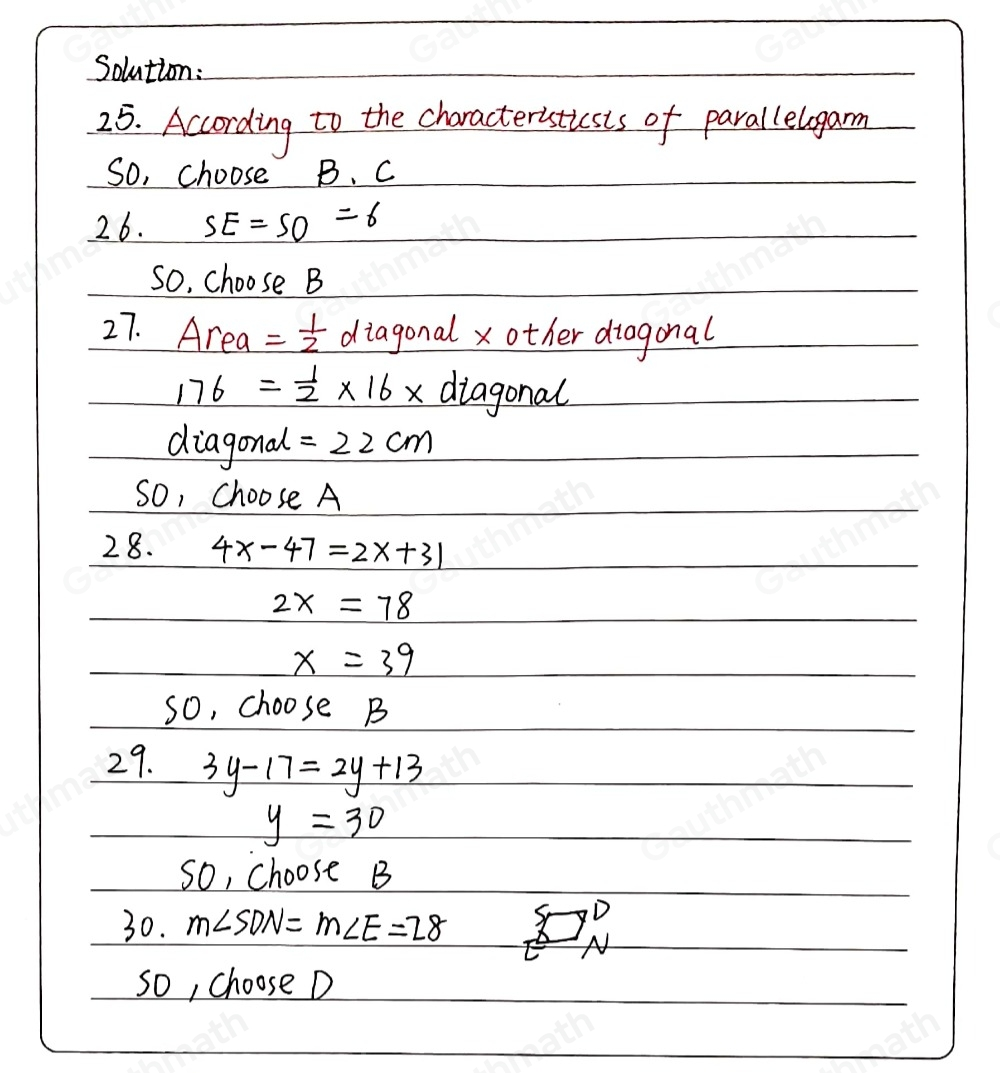 Solution:
25. According to the characteristicsis of parallelogam
SO, choose B. C
26. SE = SO = 6
SO. choose B
27. Area = 1/2 diagonal × other diagonal
176 = 1/2 × 16 × diagonal
diagonal = 22 cm
SO, choose A
28. 4x-47=2x+31
2x = 78
x = 39
SO, choose B
29. 3y-17=2y+13
y = 30
SO, choose B
30. m∠SDN= m∠E=28 S D
E N
SO, choose D